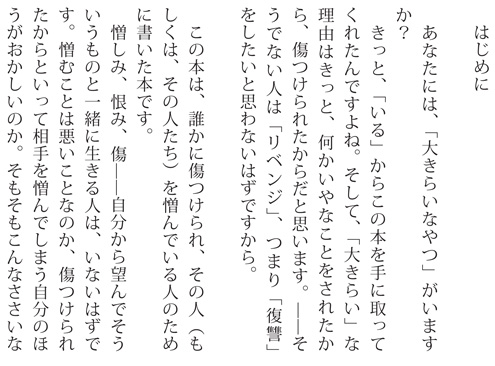 はじめに
あなたには、「大きらいなやつ」がいます
か？
きっと、「いる」からこの本を手に取って
くれたんですよね。そして、「大きらい」な
理由はきっと、何かいやなことをされたか
ら、傷つけられたからだと思います。――そ
うでない人は「リベンジ」、つまり「復讐」
をしたいと思わないはずですから。
この本は、誰かに傷つけられ、その人（も
しくは、その人たち）を憎んでいる人のため
に書いた本です。
憎しみ、恨み、傷――自分から望んでそう
いうものと一緒に生きる人は、いないはずで
す。憎むことは悪いことなのか、傷つけられ
たからといって相手を憎んでしまう自分のほ
うがおかしいのか。そもそもこんなささいな